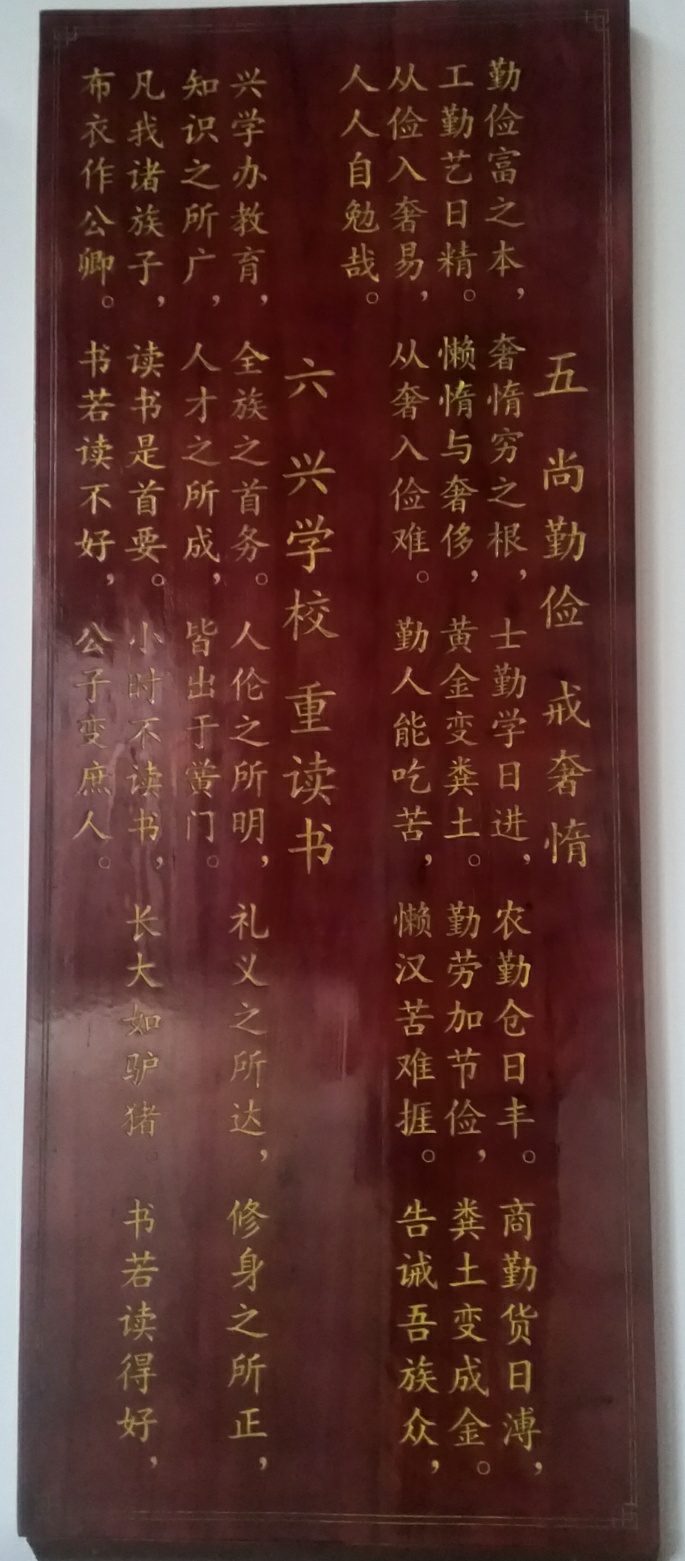 五 尚勤俭 戒奢惰
勤俭富之本，奢惰穷之根，士勤学日进，农勤仓日丰。商勤货日溥，
工勤艺日精。懒惰与奢侈，黄金变粪土。勤劳加节俭，粪土变成金。
从俭入奢易，从奢入俭难。勤人能吃苦，懒汉苦难捱。告诫吾族众，
人人自勉哉。
六 兴学校 重读书
兴学办教育，全族之首务。人伦之所明，礼义之所达，修身之所正，
知识之所广，人才之所成，皆出于黉门。
凡我诸族子，读书是首要。小时不读书，长大如驴猪。书若读得好，
布衣作公卿。书若读不好，公子变庶人。